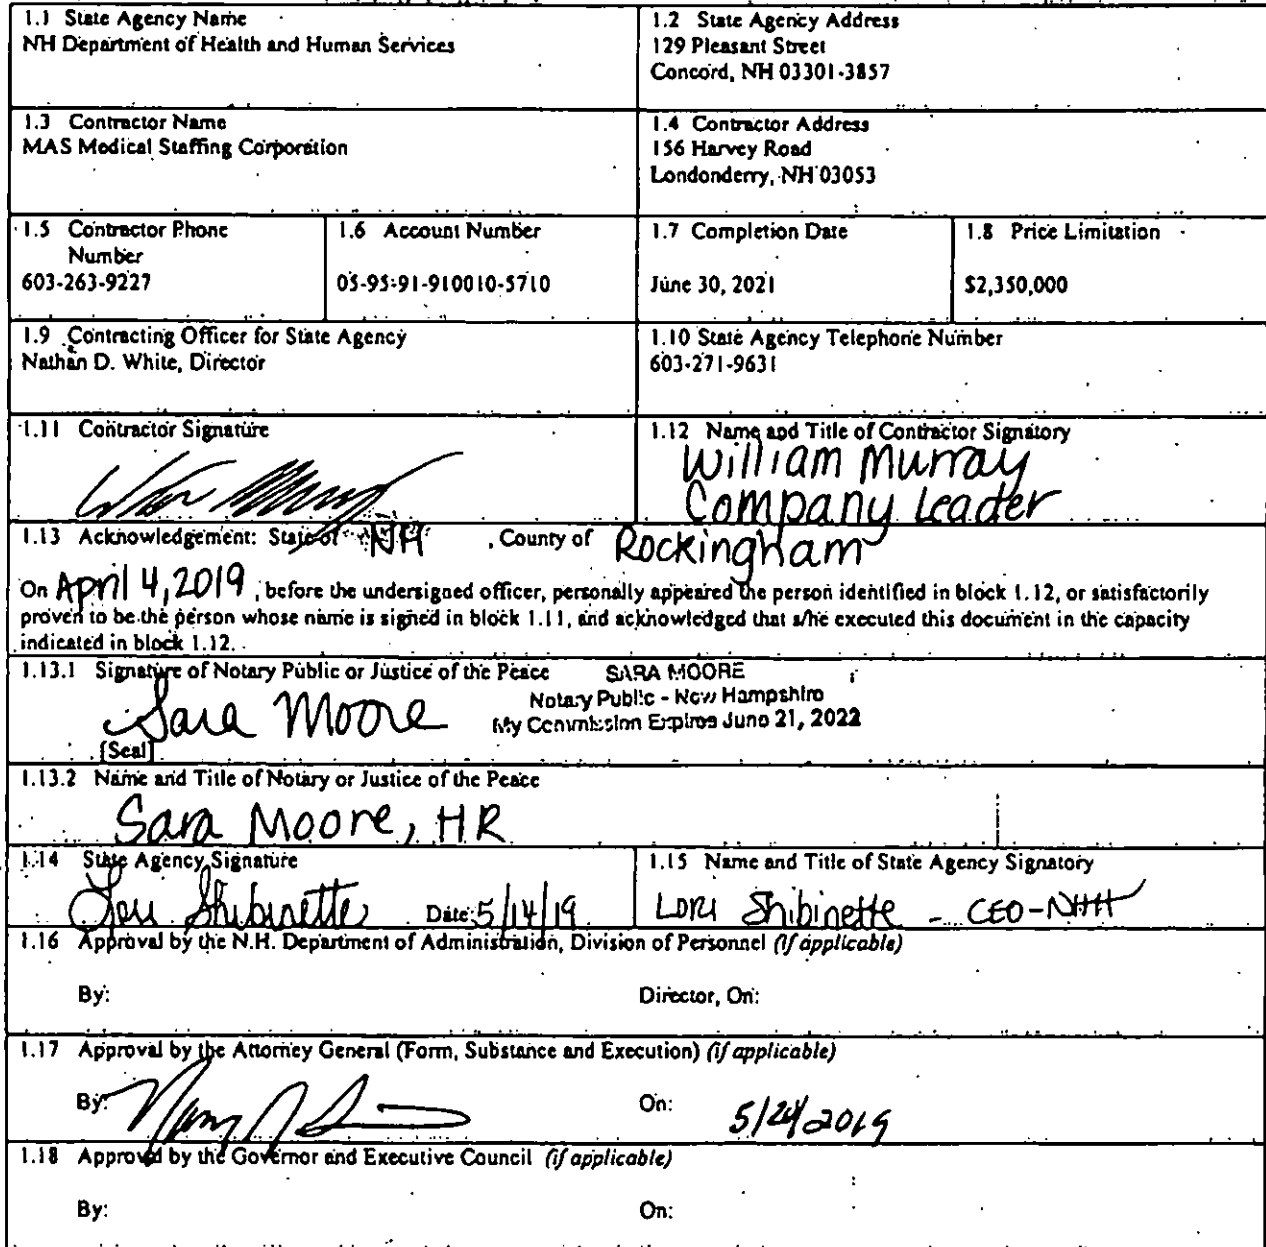 1.1 State Agency Name
NH Department of Health and Human Services
1.2 State Agency Address
129 Pleasant Street
Concord, NH 03301-3857
1.3 Contractor Name
MAS Medical Staffing Corporation
1.4 Contractor Address
156 Harvey Road
Londonderry, NH 03053
1.5 Contractor Phone
Number
603-263-9227
1.6 Account Number
05-95-91-910010-5710
1.7 Completion Date
June 30, 2021
1.8 Price Limitation
$2,350,000
1.9 Contracting Officer for State Agency
Nathan D. White, Director
1.10 State Agency Telephone Number
603-271-9631
1.11 Contractor Signature
1.12 Name and Title of Contractor Signatory
William Murray
Company Leader
1.13 Acknowledgement: State of NH , County of Rockingham
On April 4, 2019 , before the undersigned officer, personally appeared the person identified in block 1.12, or satisfactorily
proven to be the person whose name is signed in block 1.11, and acknowledged that s/he executed this document in the capacity
indicated in block 1.12.
1.13.1 Signature of Notary Public or Justice of the Peace
SARA MOORE
Notary Public - New Hampshire
My Commission Expires June 21, 2022
Sara Moore
[Seal]
1.13.2 Name and Title of Notary or Justice of the Peace
Sara Moore, HR
1.14 State Agency Signature
Lori Shibinette Date: 5/14/19
1.15 Name and Title of State Agency Signatory
Lori Shibinette - CEO-NHH
1.16 Approval by the N.H. Department of Administration, Division of Personnel (if applicable)
By:
Director, On:
1.17 Approval by the Attorney General (Form, Substance and Execution) (if applicable)
By:
On: 5/24/2019
1.18 Approval by the Governor and Executive Council (if applicable)
By:
On: